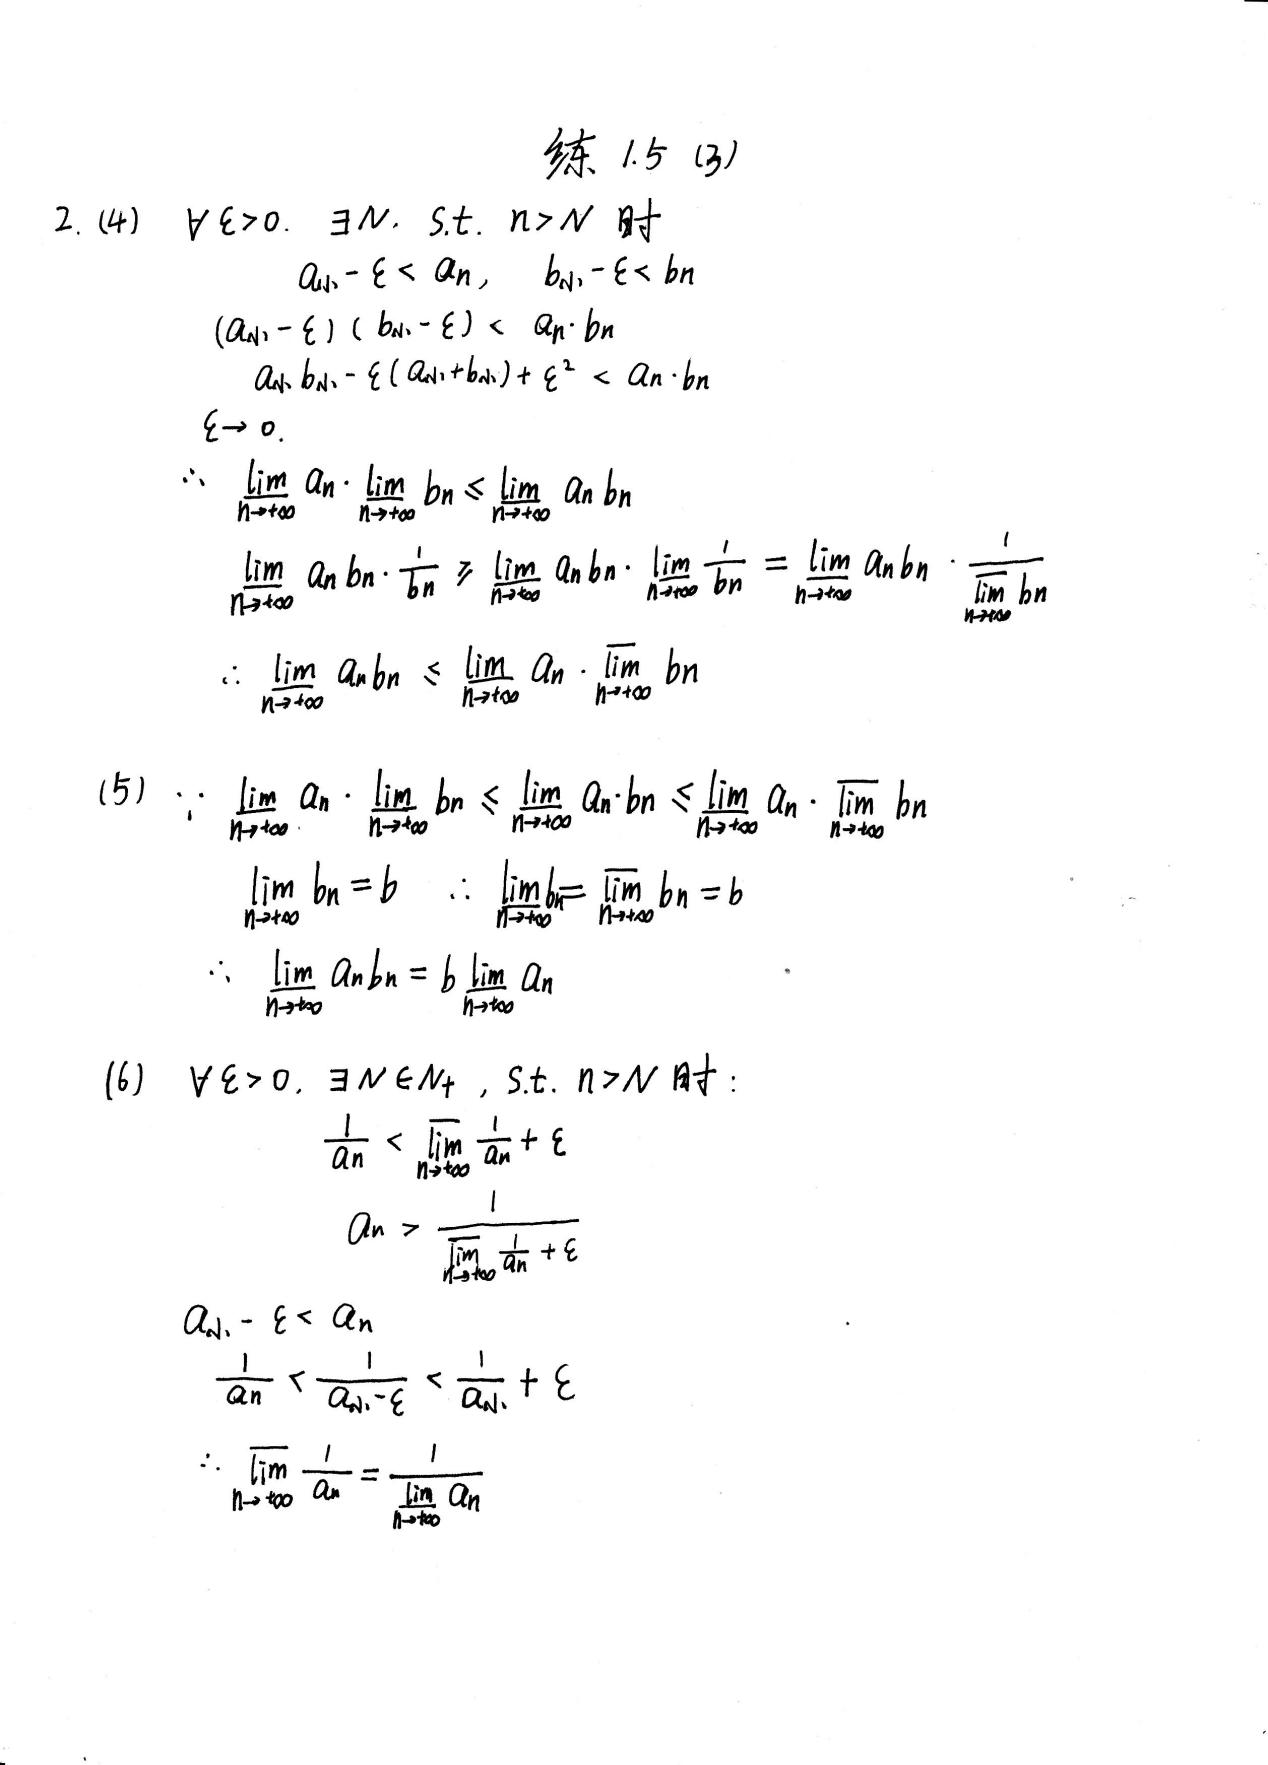 练 1.5 (3)
2. (4) ∀ ε>0. ∃N. s.t. n>N 时
a_{N₁} - ε < a_n, b_{N₁} - ε < b_n
(a_{N₁} - ε)(b_{N₁} - ε) < a_n · b_n
a_{N₁} b_{N₁} - ε(a_{N₁} + b_{N₁}) + ε² < a_n · b_n
ε → 0.
∴ \underline{lim}_{n→+∞} a_n · \underline{lim}_{n→+∞} b_n ≤ \underline{lim}_{n→+∞} a_n b_n
\underline{lim}_{n→+∞} a_n b_n · \frac{1}{b_n} ≥ \underline{lim}_{n→+∞} a_n b_n · \underline{lim}_{n→+∞} \frac{1}{b_n} = \underline{lim}_{n→+∞} a_n b_n · \frac{1}{\overline{lim}_{n→+∞} b_n}
∴ \underline{lim}_{n→+∞} a_n b_n ≤ \underline{lim}_{n→+∞} a_n · \overline{lim}_{n→+∞} b_n
(5) ∵ \underline{lim}_{n→+∞} a_n · \underline{lim}_{n→+∞} b_n ≤ \underline{lim}_{n→+∞} a_n · b_n ≤ \underline{lim}_{n→+∞} a_n · \overline{lim}_{n→+∞} b_n
lim_{n→+∞} b_n = b ∴ \underline{lim}_{n→+∞} b_n = \overline{lim}_{n→+∞} b_n = b
∴ \underline{lim}_{n→+∞} a_n b_n = b \underline{lim}_{n→+∞} a_n
(6) ∀ ε>0. ∃ N ∈ N₊, s.t. n>N 时:
\frac{1}{a_n} < \overline{lim}_{n→+∞} \frac{1}{a_n} + ε
a_n > \frac{1}{\overline{lim}_{n→+∞} \frac{1}{a_n} + ε}
a_{N₁} - ε < a_n
\frac{1}{a_n} < \frac{1}{a_{N₁} - ε} < \frac{1}{a_{N₁}} + ε
∴ \overline{lim}_{n→+∞} \frac{1}{a_n} = \frac{1}{\underline{lim}_{n→+∞} a_n}